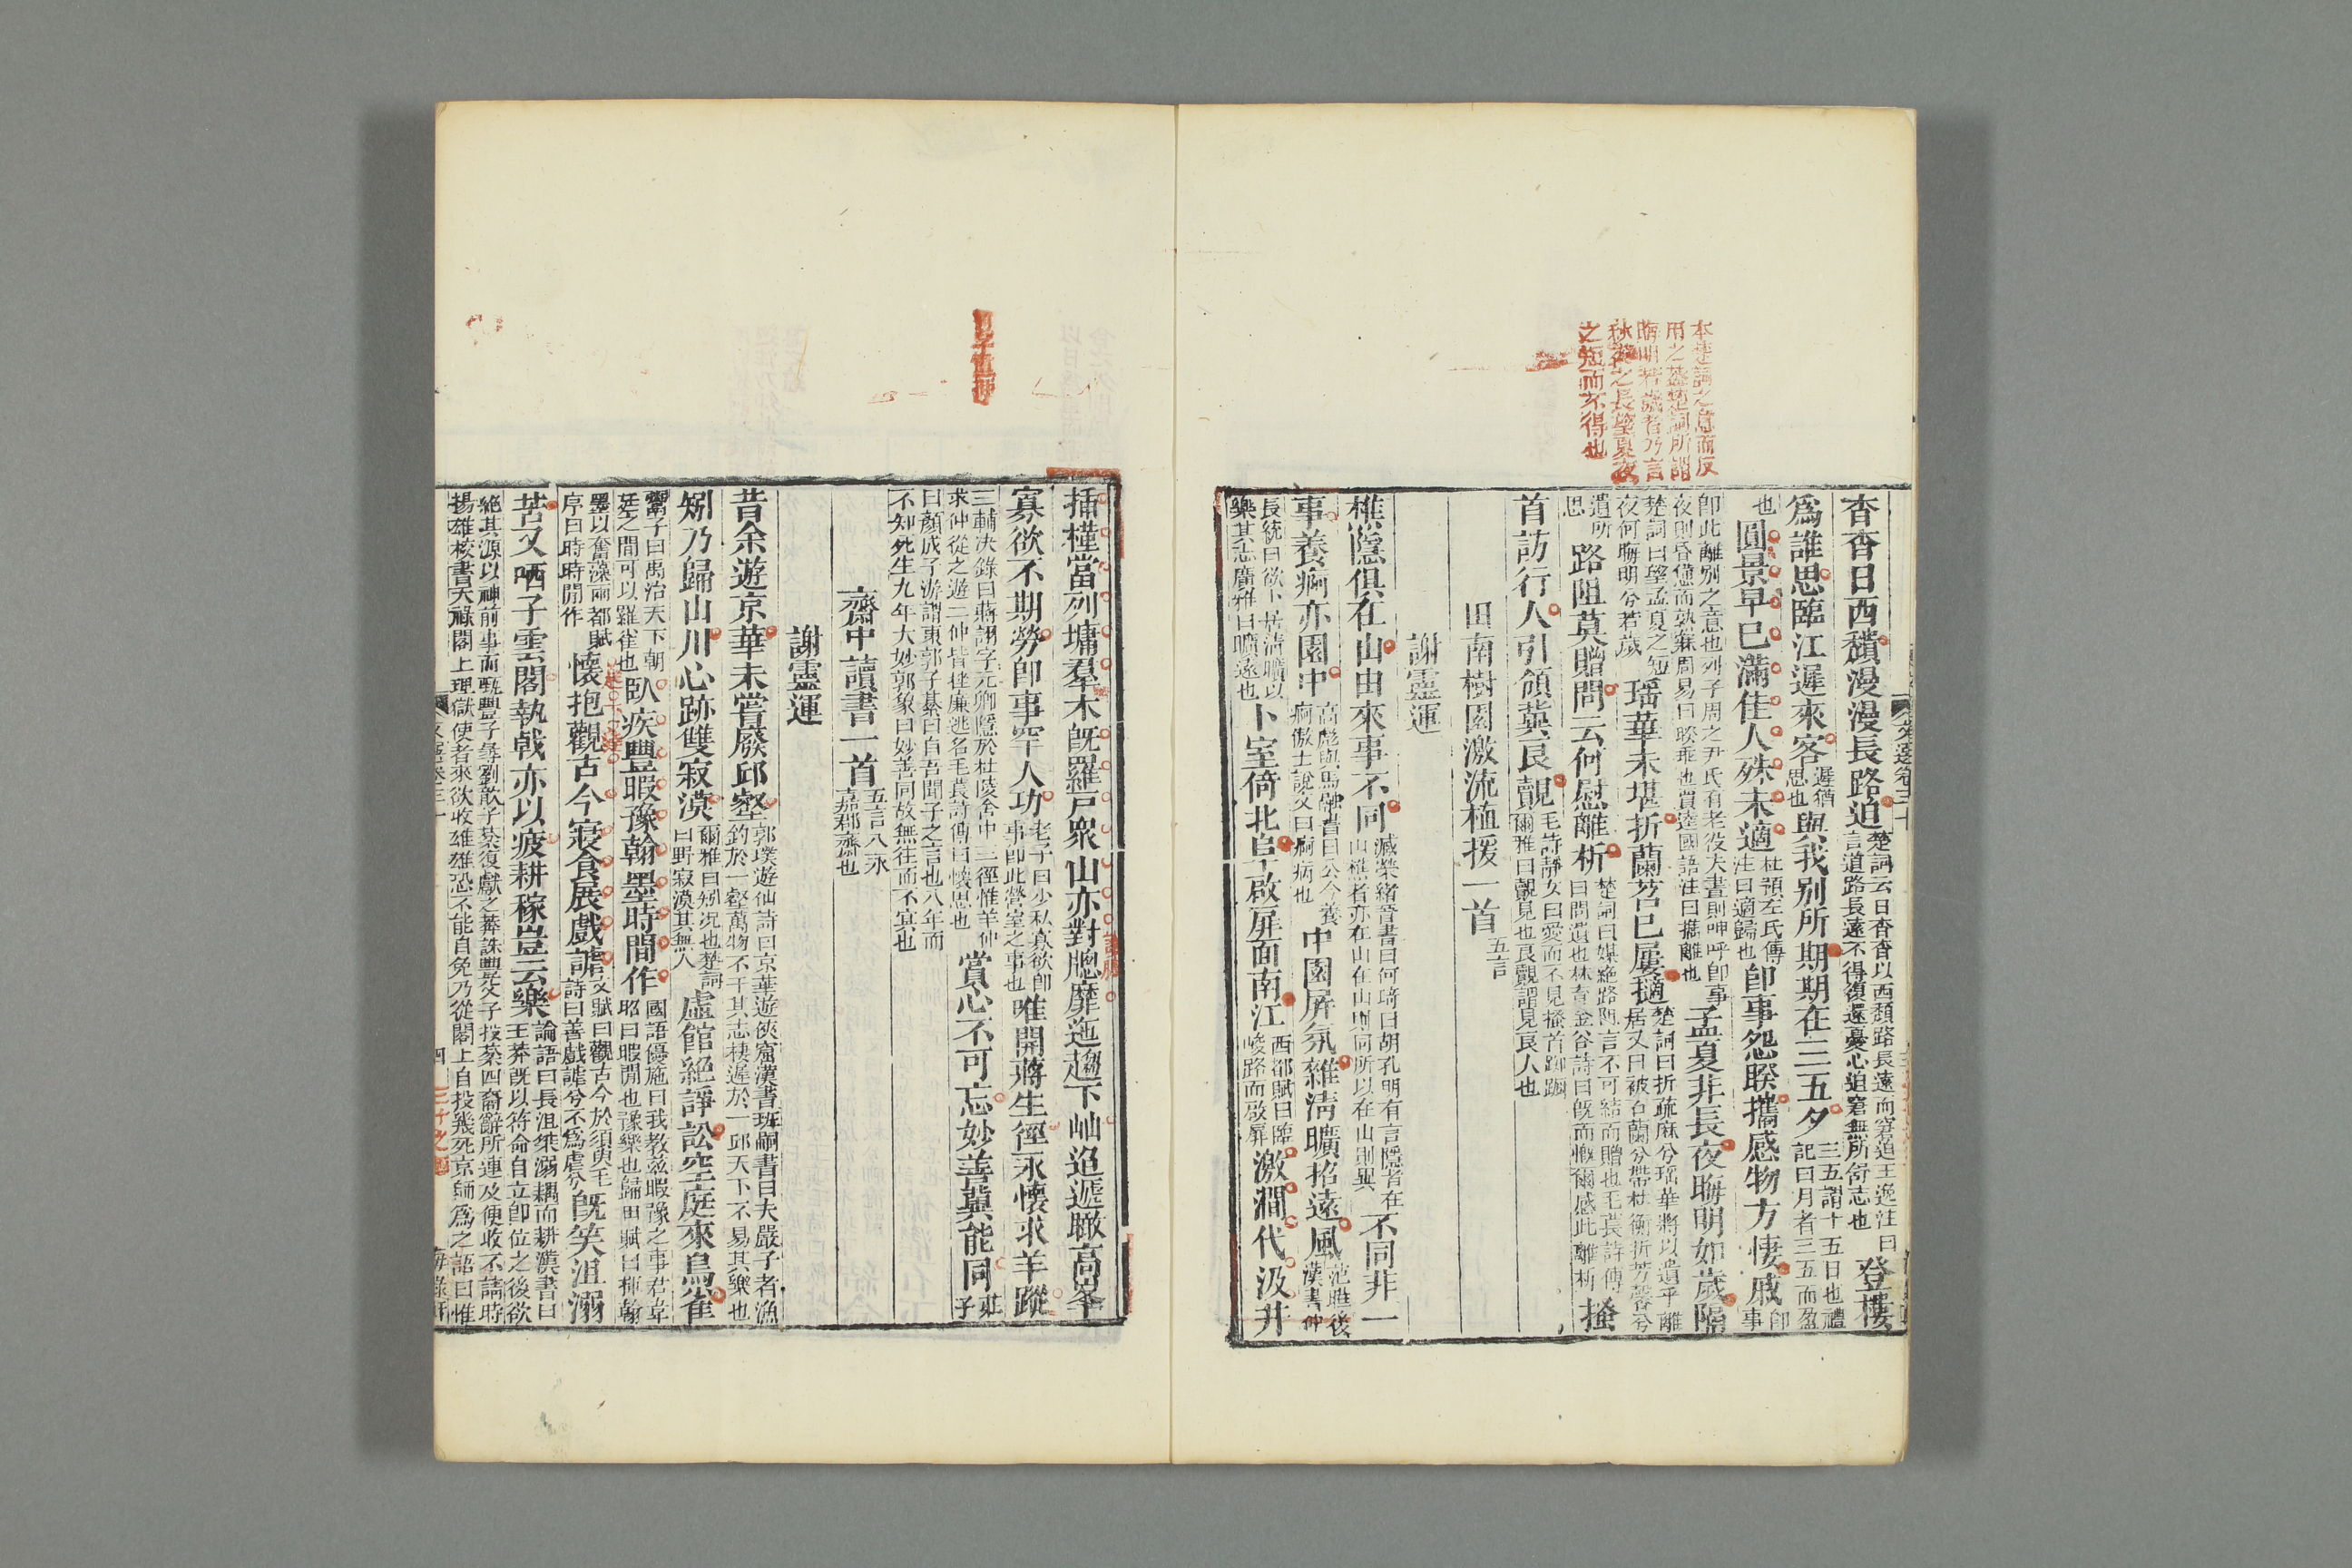 本楚詞之意而反
用之蓋楚詞所謂
晦明若歲者乃言
秋夜之長望夏夜
之短而不得也
杳杳日西穨漫漫長路迫楚詞云日杳杳以西頹路長遠而窘迫王逸注曰言道路長遠不得復還憂心迫窘無所舒志也登樓
爲誰思臨江遲來客遲猶思也與我别所期期在三五夕三五謂十五日也禮記曰月者三五而盈
也圓景早已滿佳人殊未適杜預左氏傳注曰適歸也卽事怨睽攜感物方悽戚卽事
卽此離别之意也列子周之尹氏有老役夫晝則呻呼卽事夜則昏憊而孰寐周易曰睽乖也賈逵國語注曰攜離也孟夏非長夜晦明如歲隔
楚詞曰望孟夏之短夜何晦明兮若歲瑶華未堪折蘭苕已屢摘楚詞曰折疏麻兮瑶華將以遺乎離居又曰被石蘭兮帶杜衡折芳馨兮
遺所思路阻莫贈問云何慰離析楚詞曰媒絶路阻言不可結而贈也毛萇詩傳曰問遺也林壹金谷詩曰旣而慨爾感此離析搔
首訪行人引領冀良覿毛詩靜女曰愛而不見搔首踟躕爾雅曰覿見也良覿謂見良人也
田南樹園激流植援一首五言
謝靈運
樵隱俱在山由來事不同臧榮緒晉書曰何琦曰胡孔明有言隱者在山樵者亦在山在山則同所以在山則異不同非一
事養痾亦園中高彪與馬融書曰公今養痾傲士說文曰痾病也中園屏氛雜淸曠招遠風范曄後漢書仲
長統曰欲卜居淸曠以樂其志廣雅曰曠遠也卜室倚北阜啟扉面南江西都賦曰臨峻路而啟扉激澗代汲井
插槿當列墉羣木旣羅戸衆山亦對牕靡迤趨下岫迢遞瞰高峯
寡欲不期勞卽事罕人功老子曰少私寡欲卽事卽此營室之事也唯開蔣生徑永懷求羊蹤
三輔決錄曰蔣詡字元卿隱於杜陵舍中三徑惟羊仲求仲從之遊二仲皆挫廉逃名毛萇詩傳曰懷思也賞心不可忘妙善冀能同莊子
曰顔成子游謂東郭子綦曰自吾聞子之言也八年而不知死生九年大妙郭象曰妙善同故無往而不冥也
齋中讀書一首五言八永嘉郡齋也
謝靈運
昔余遊京華未嘗廢邱壑郭璞遊仙詩曰京華遊俠窟漢書班嗣書曰夫嚴子者漁釣於一壑萬物不干其志棲遲於一邱天下不易其樂也
矧乃歸山川心跡雙寂漠爾雅曰矧况也楚詞曰野寂漠其無人虛館絕諍訟空庭來鳥雀
鬻子曰禹治天下朝廷之間可以羅雀也臥疾豐暇豫翰墨時間作國語優施曰我教茲暇豫之事君韋昭曰暇閒也豫樂也歸田賦曰揮翰
墨以奮藻兩都賦序曰時時閒作懷抱觀古今寢食展戲謔文賦曰觀古今於須臾毛詩曰善戲謔兮不爲虐兮旣笑沮溺
苦又哂子雲閣執戟亦以疲耕稼豈云樂論語曰長沮桀溺耦而耕漢書曰王莽旣以符命自立卽位之後欲
絶其源以神前事而甄豐子尋劉歆子棻復獻之莽誅豐父子投棻四裔辭所連及便收不請時揚雄校書天祿閣上理獄使者來欲收雄雄恐不能自免乃從閣上自投幾死京師爲之語曰惟
文選卷三十
四
海錄軒